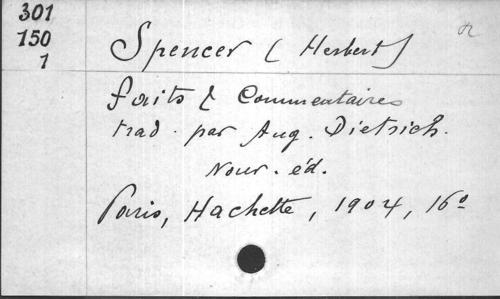 301
150
1
Spencer (Herbert)
Faits & Commentaires
trad. par Aug. Dietrich.
Nouv. éd.
Paris, Hachette, 1904, 16º